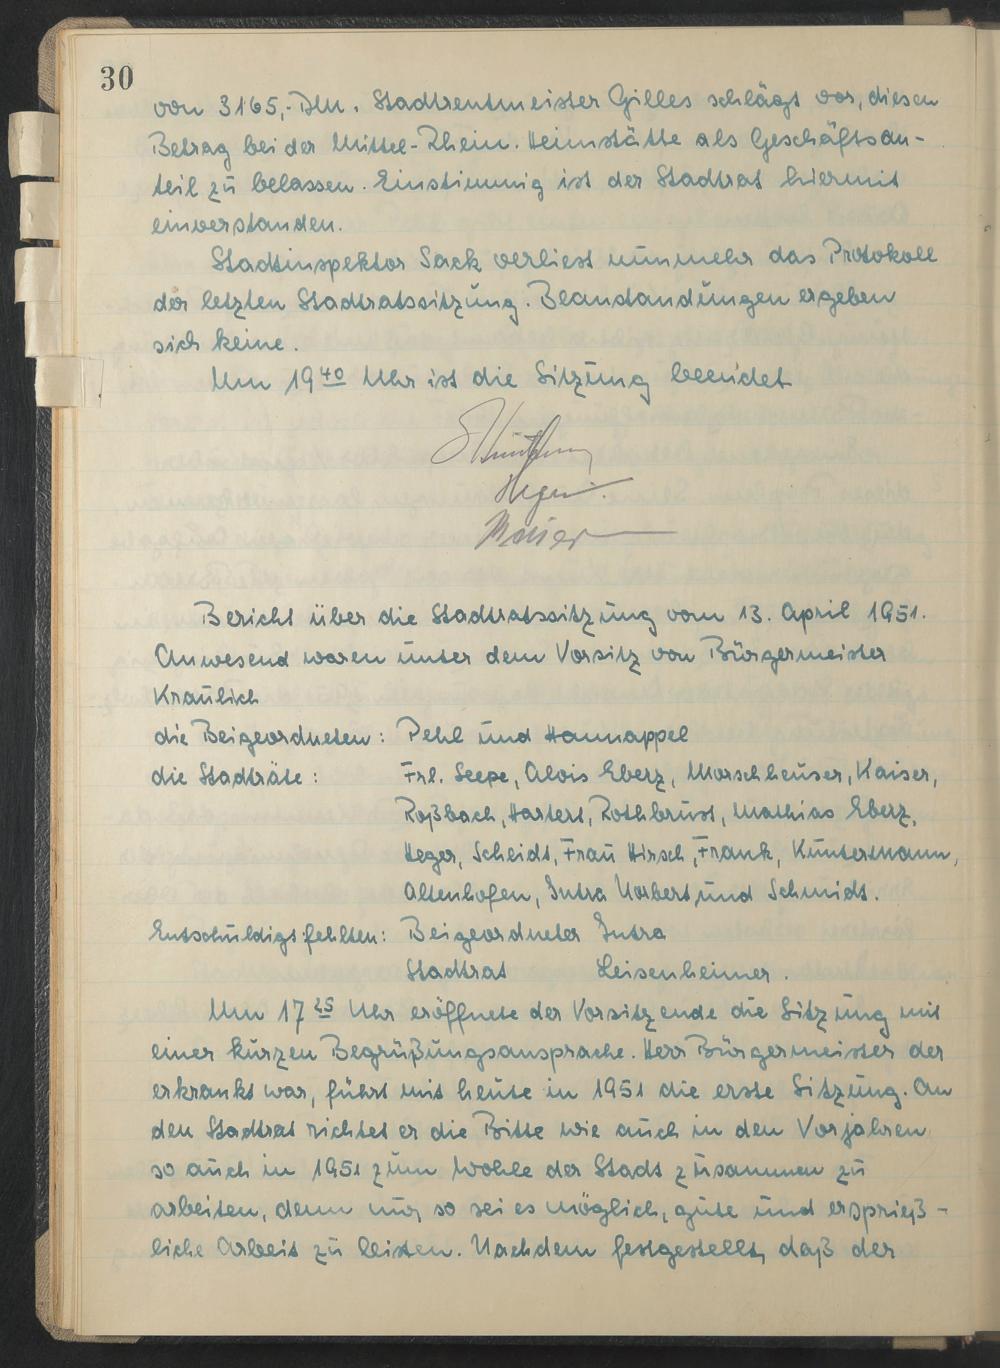 30
von 3165,- DM. Stadtrentmeister Gilles schlägt vor, diesen
Betrag bei der Mittel-Rhein. Heimstätte als Geschäftsan-
teil zu belassen. Einstimmig ist der Stadtrat hiermit
einverstanden.
Stadtinspektor Sack verliest nunmehr das Protokoll
der letzten Stadtratssitzung. Beanstandungen ergeben
sich keine.
Um 19 40 Uhr ist die Sitzung beendet
Bericht über die Stadtratssitzung vom 13. April 1951.
Anwesend waren unter dem Vorsitz von Bürgermeister
Kraulich
die Beigeordneten: Pehl und Hannappel
die Stadträte: Frl. Seepe, Alois Eberz, Morschheuser, Kaiser,
Roßbach, Hartert, Rothbrust, Mathias Eberz,
Heger, Scheidt, Frau Hirsch, Frank, Küntermann,
Altenhofen, Jutra Norbert und Schmidt.
Entschuldigt fehlten: Beigeordneter Jutra
Stadtrat Leisenheimer.
Um 17 25 Uhr eröffnete der Vorsitzende die Sitzung mit
einer kurzen Begrüßungsansprache. Herr Bürgermeister der
erkrankt war, führt mit heute in 1951 die erste Sitzung. An
den Stadtrat richtet er die Bitte wie auch in den Vorjahren
so auch in 1951 zum Wohle der Stadt zusammen zu
arbeiten, denn nur so sei es möglich, gute und ersprieß-
liche Arbeit zu leisten. Nachdem festgestellt, daß der